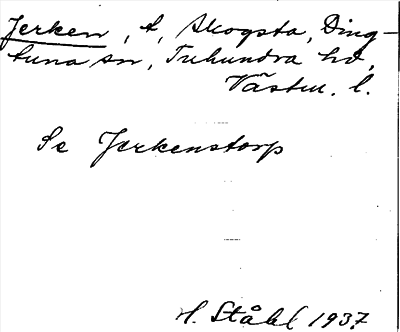 Jerken, t, Skogsta, Ding-
tuna sn, Tuhundra hd,
Västm. l.
Se Jerkenstorp
H. Ståhl 1937